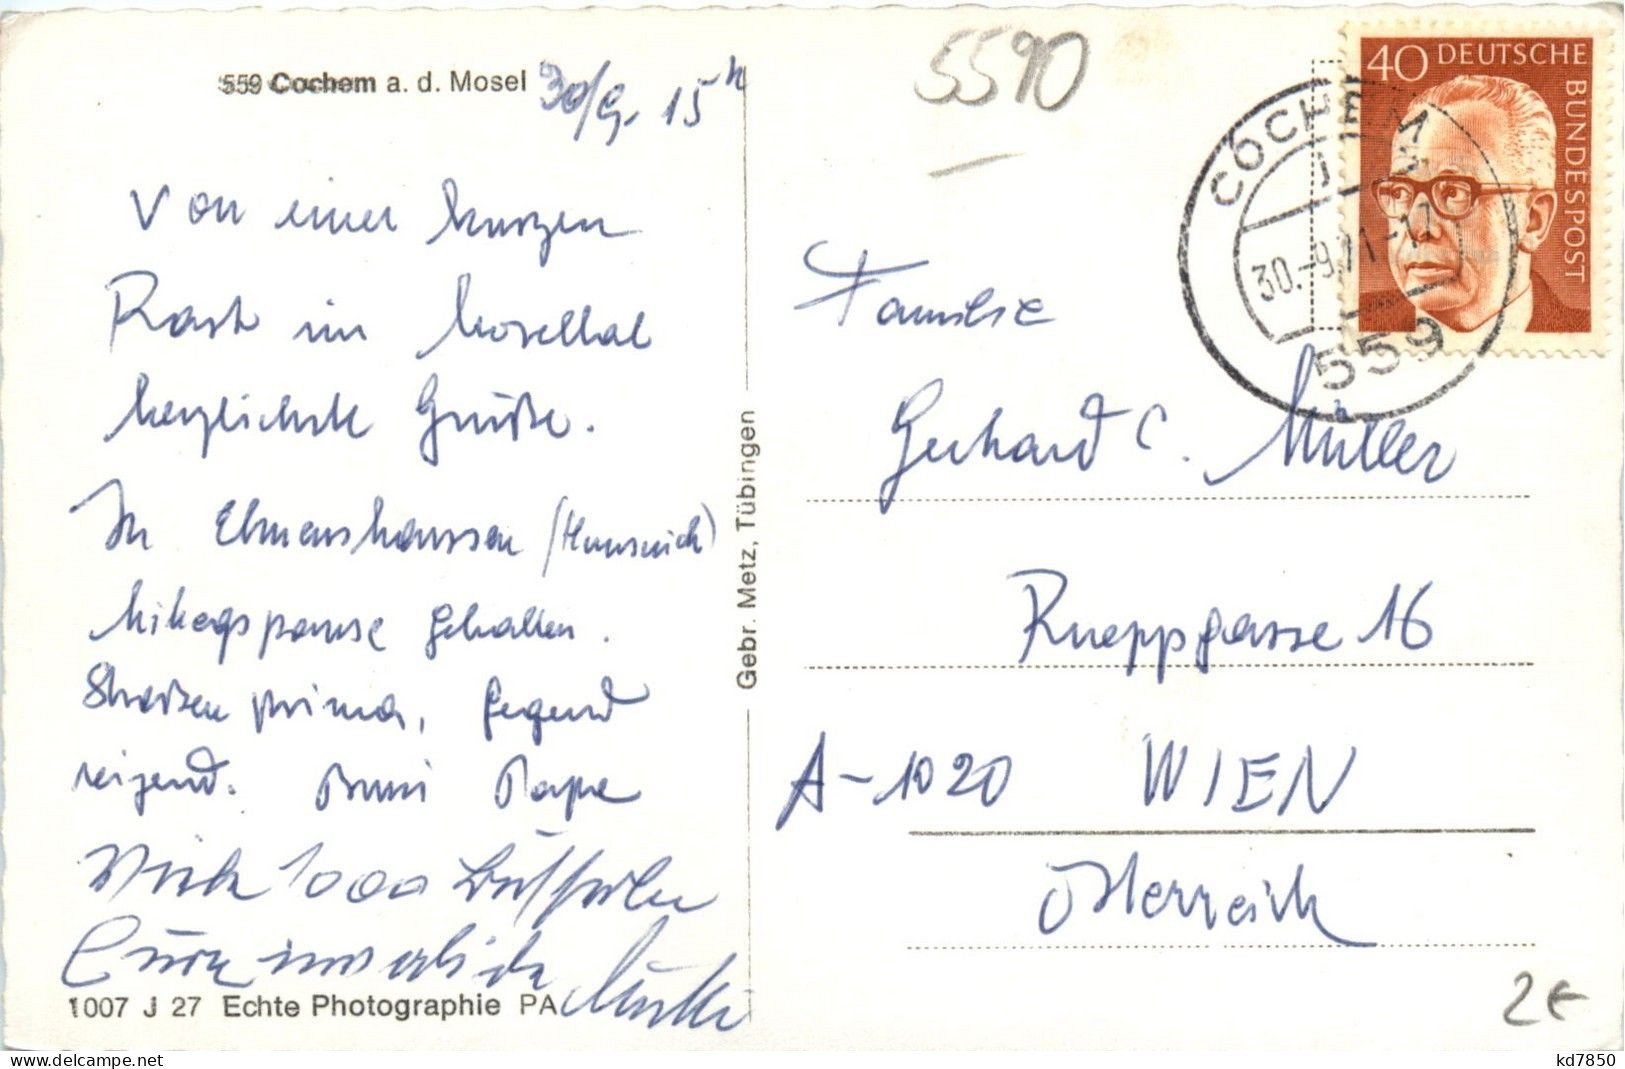 559 Cochem a. d. Mosel 30/9. 15h
Von einer kurzen
Rast im Moseltal
herzlichste Grüße.
In (Hunsrück)
Mittagspause gehalten.
Straßen prima, Gegend
reizend. Bussi Papa
Mich 1000
Eure Mutti
1007 J 27 Echte Photographie PA
Gebr. Metz, Tübingen
5590
40 DEUTSCHE
BUNDESPOST
COCHEM
1
30.-9.71-17
559
Familie
Gerhard C. Müller
Rueppgasse 16
A-1020 WIEN
Österreich
2€
kd7850